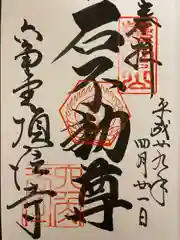 奉拝
平成廿九年
四月廿一日
石不動尊
六角堂頂法寺